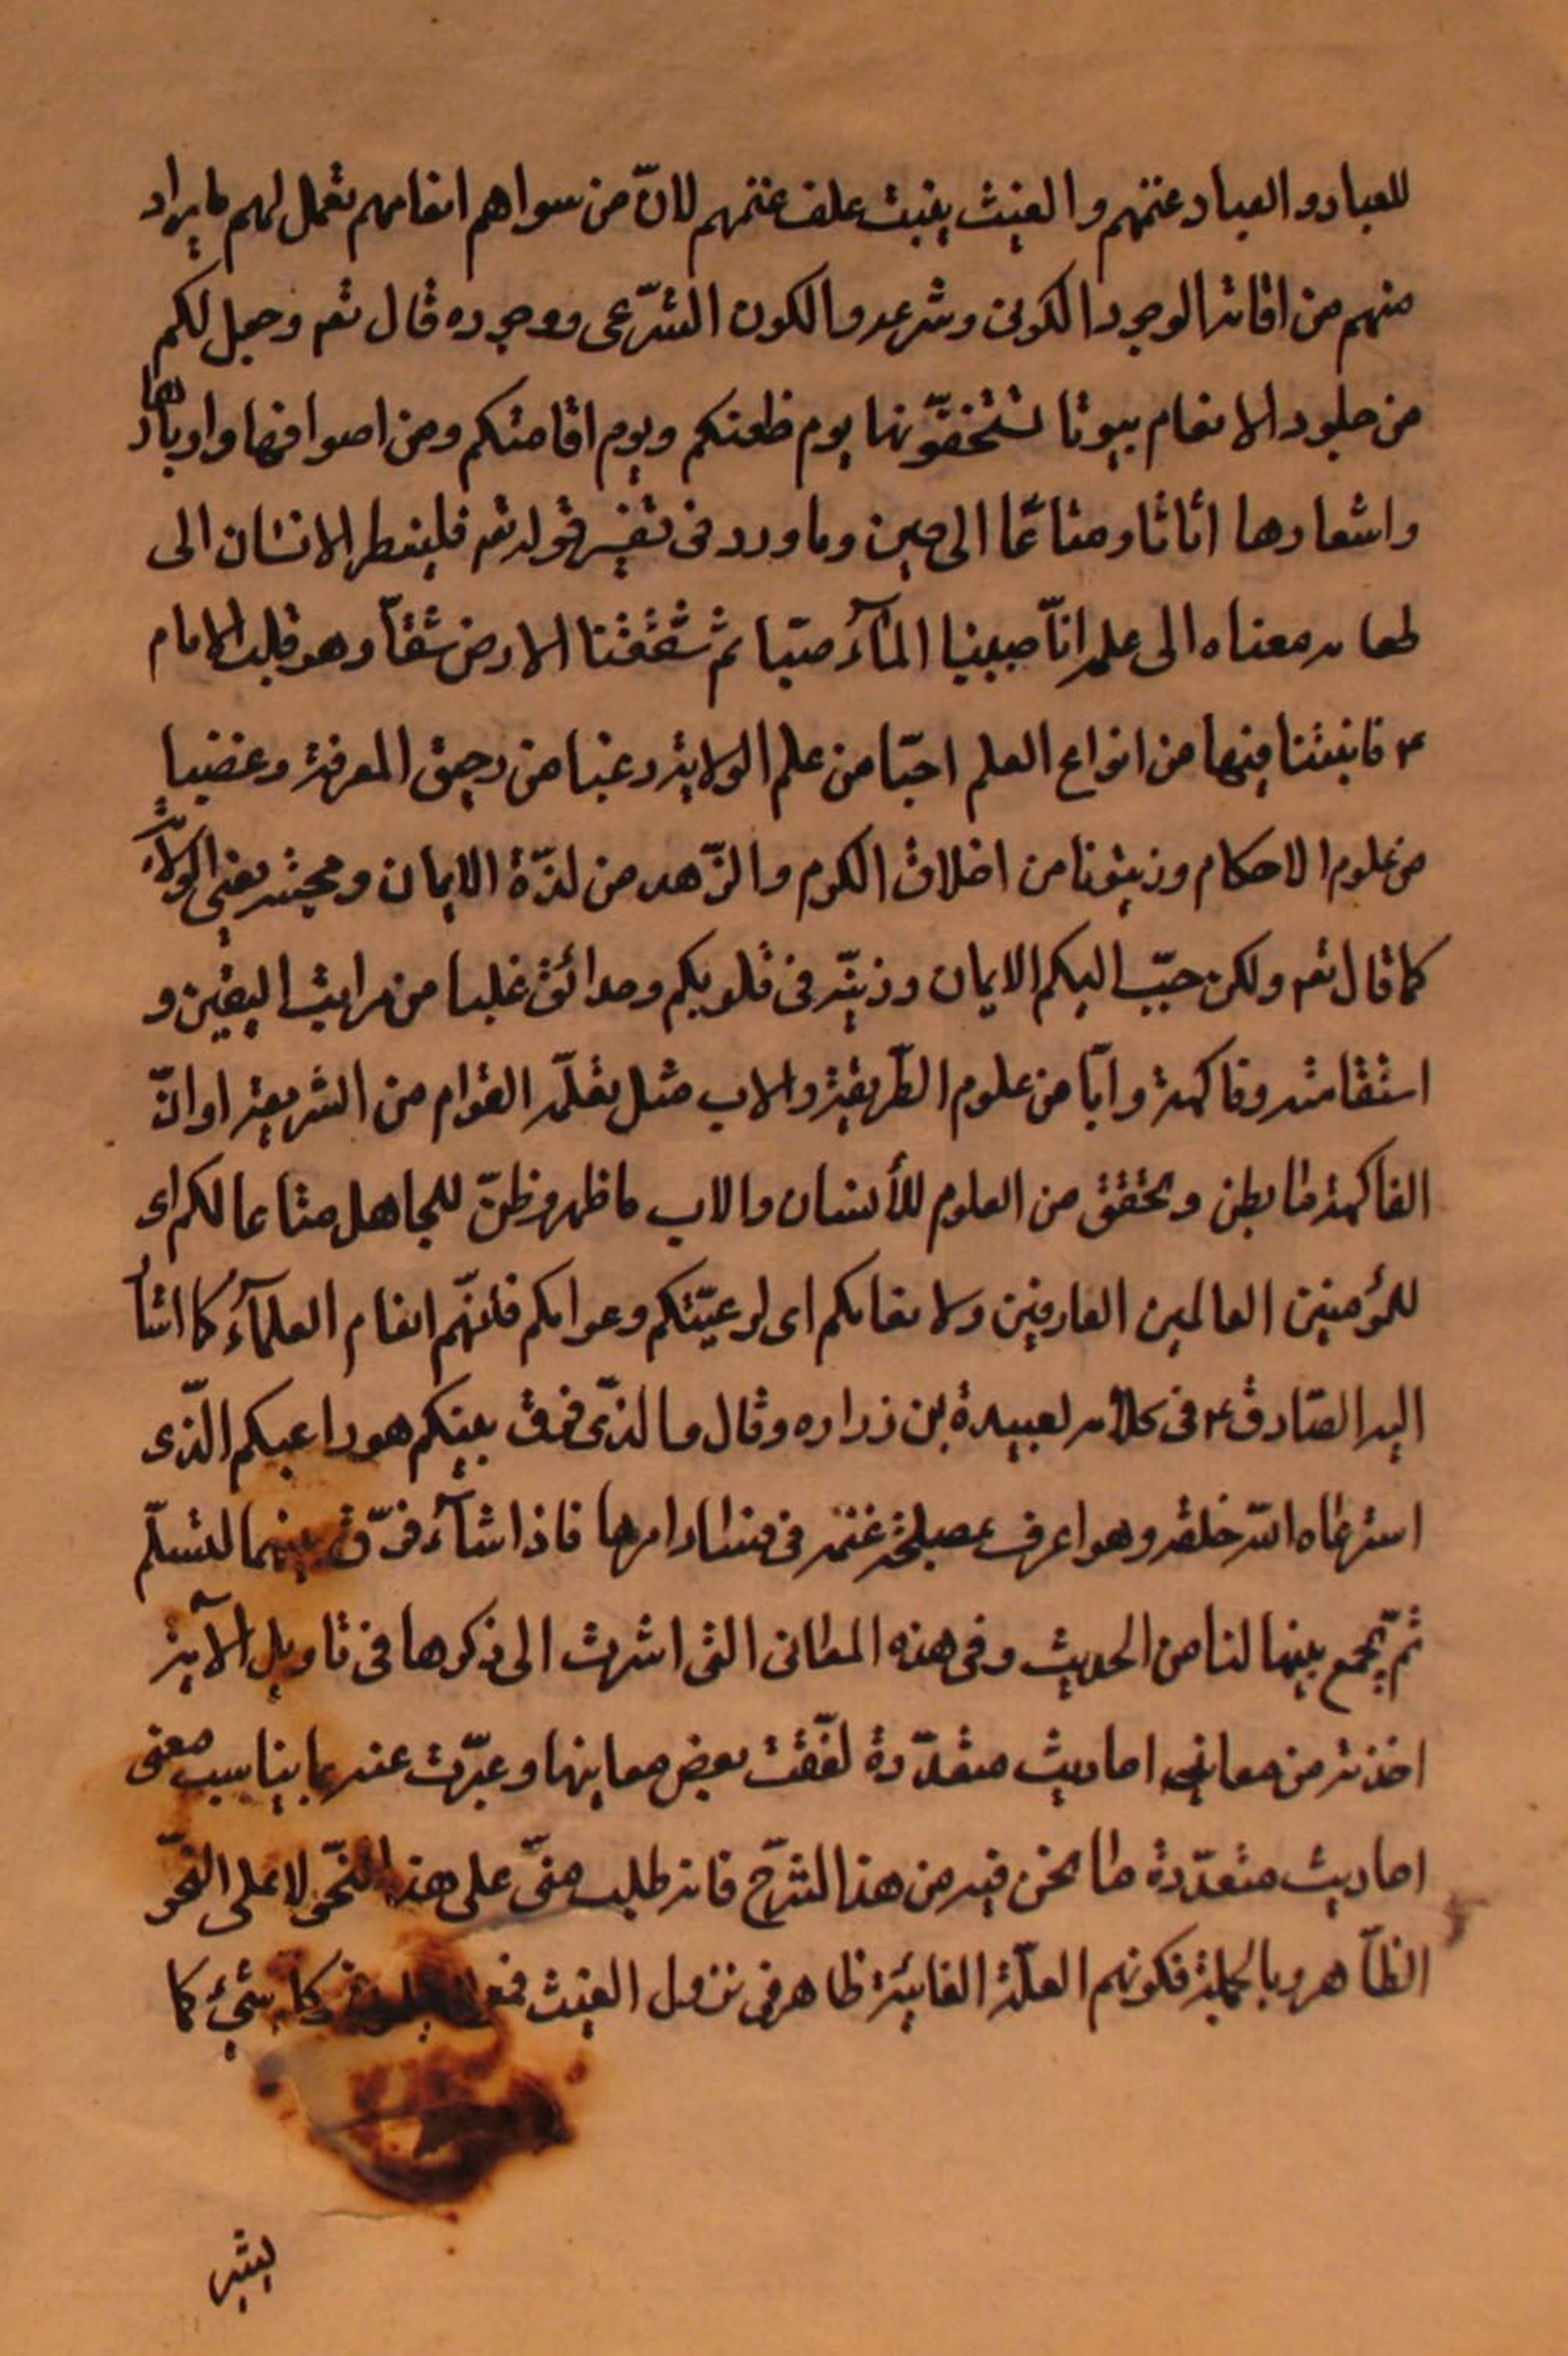 للعباد و العباد غنمهم و الغيث ينبت علف غنمهم لانّ من سواهم انعامهم تعمل لهم ما يراد
منهم من اقامة الوجود الكونى و شرعه و الكون الشّرعى و وجوده قال تعم و جعل لكم
من جلود الانعام بيوتا تستخفّونها يوم ظعنكم و يوم اقامتكم و من اصوافها و اوبارها
و اشعارها اثاثا و متاعًا الى حين و ما ورد فى تفسير قوله تعم فلينظر الانسان الى
طعامه معناه الى علمه انّا صببنا المآء صبّا ثم شققنا الارض شقّا و هو قلب الامام
ع فانبتنا فيها من انواع العلم احبّا من علم الولاية و عنبا من رحيق المعرفة و عضبا
من علوم الاحكام و زيتونا من اخلاق الكرم و الزّهد من لذّة الايمان و محبته يعنى الولاية
كما قال تعم و لكن حبّب اليكم الايمان و زيّنه فى قلوبكم و حدائق غلبا من مراتب اليقين و
استقامته و فاكهة و ابّا من علوم الطّريقة و الاب مثل تعلّمه القوام من الشريعة او انّ
الفاكهة ما بطن و تحقق من العلوم للأنسان و الاب ما ظهر و ظنّ للجاهل متاعا لكم اى
للمؤمنين العالمين العارفين و لانعامكم اى لرعيّتكم و عوامكم فانّهم انعام العلمآء كما اشأ
اليه الصّادق ع فى كلامه لعبيدة بن زراره و قال و الذّى فرق بينكم هو راعيكم الّذى
استرعاه اللّه خلقه و هو اعرف بمصلحة غنمه فى فساد امرها فاذا شآء فرّق بينهما لتسلّم
ثمّ يجمع بينها لنا من الحديث و فى هذه المعانى التى اشرت الى ذكرها فى تاويل الآية
اخذته من معانى احاديث متعدّدة لفّقت بعض معاينها و عبّرت عنه بما يناسب معنى
احاديث متعدّدة ما نحن فيه من هذا الشّرح فانه طلب منّى على هذا النّحو لا على النّحو
الظّاهر و بالجملة فكونهم العلّة الغائيّة ظاهر فى نزول الغيث كل شئ كما
يشير